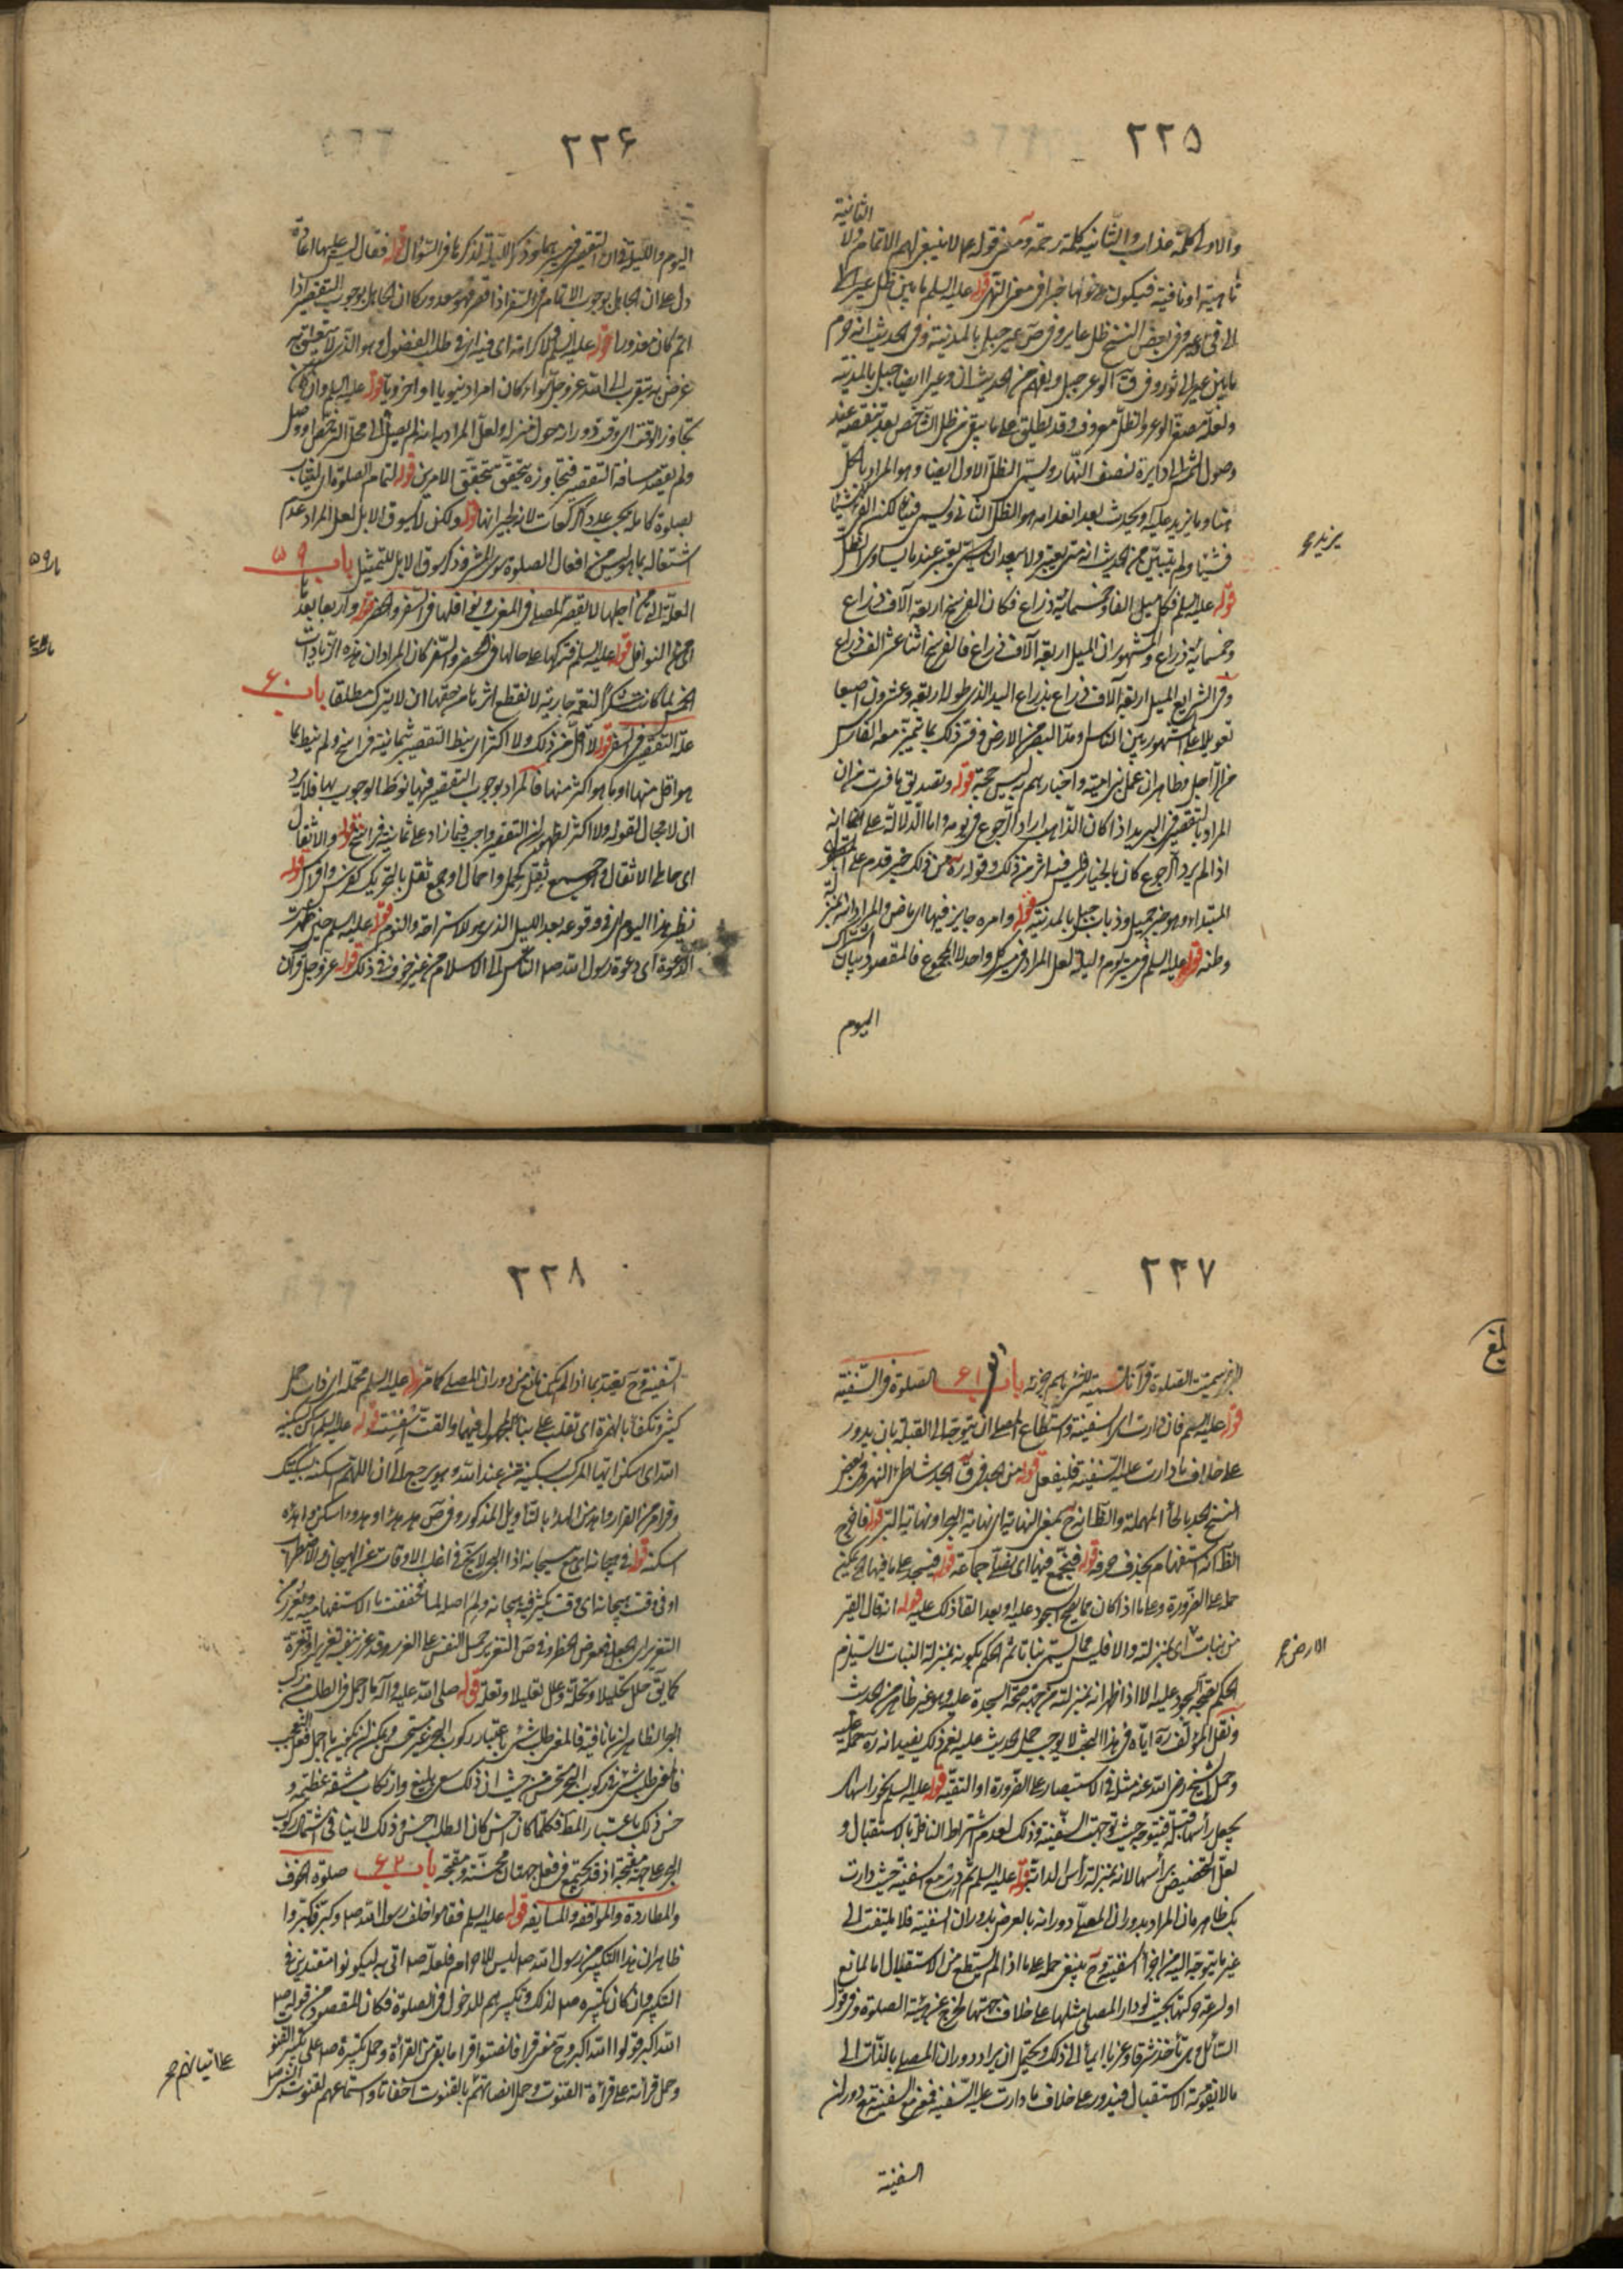 ٢٢٥
الثانية
والاولى كلمة عذاب والثانية كلمة رحمة ومعنى قوله لا ينبغي لهم الاتمام ولا
ناهية او نافية فيكون نحوها خبرا في معنى النهي قوله عليه السلم ما بين ظل عير الى
الى فيء وعير وفي بعض النسخ ظل عاير وفي ص عير جبل بالمدينة وفي الحديث انه حرم
ما بين عير الى ثور وفي ق الوعر جبل ويفهم من الحديث ان وعيرا ايضا جبل بالمدينة
ولعله مصغر الوعر والظل معروف وقد يطلق على ما يبقى من ظل الشاخص بعد تنقصه عند
وصول الشمس الى دايرة لنصف النهار ويسمى الظل الاول ايضا وهو المراد بالظل
هنا وما يزيد عليه ويحدث بعد انعدامه هو الظل الثاني ويسمى فيئا لكنس الفيء شيئا
فشيئا ولم يتبين من الحديث انه متى يعتبر ولا يبعد ان يعتبر عند ما يساوى الظل
يزيد
قوله عليه السلم فكل ميل الفا وخمسمائة ذراع فكان الفرسخ اربعة آلاف ذراع
وخمسمائة ذراع والمشهور ان الميل اربعة آلاف ذراع فالفرسخ اثنا عشر الف ذراع
وفي الشرايع الميل اربعة آلاف ذراع بذراع اليد الذى طوله اربعة وعشرون اصبعا
تعويلا على المشهور بين الناس او مد البصر من الارض وفسر ذلك بما يتميز معه الفارس
من الراجل وظاهر ان عمل بنى امية واخبارهم ليس حجة قوله وتصديق ما فسرت من ان
المراد بالتقصير في البريد اذا كان الذاهب اراد الرجوع في يومه واما الدلالة على انه
اذا لم يرد الرجوع كان بالخيار فليس فيه اثر من ذلك وقوله من ذلك خبر قدم على
المبتداء وهو خبر جميل وذباب جبل بالمدينة قوله وامره جايز فيها اى ماض والمراد انه بمنزلة
وطنه قوله عليه السلم في مسيرة يوم وليلة لعل المراد في مسير كل واحد لا المجموع فالمقصود بيان
اليوم
٢٢۶
اليوم والليلة وان التقصير في مسيرهما وذكر الليلة لذكرها في السؤال قوله فقال ليس عليها اعادة
دل على ان الجاهل بوجوب الاتمام في السفر اذا قصر فهو معذور كما ان الجاهل بوجوب التقصير اذا
اتم كان معذورا قوله عليه السلم لا كرامة اى فيه او في طلب الفضول وهو الذى لا يتعلق به
غرض يتقرب الى الله عز وجل سواء كان امرا دنيويا او اخرويا قوله عليه السلم وان كان
تجاوز الوقت اى وقد دورانه حول منزله ولعل المراد بيان انه لم يصل الى محل الترخص او وصل
ولم يقصد مسافة التقصير فتجاوزه يتحقق بتحقق الامرين قوله لتمام الصلوة اى ليقابل
بصلوة كاملة بحسب عدد الركعات لا بنظير انها قوله ولكن لا يسوق الابل لعل المراد عدم
اشتغاله بما هو ليس من افعال الصلوة سوى المشى وذكر سوق الابل للتمثيل باب ۵۹
العلة التى من اجلها لا يقصر المصلى في المغرب ونوافلها في السفر والحضر قوله واربعا بعدها
اى من النوافل قوله عليه السلم فتركها على حالها في الحضر والسفر كان المراد ان هذه الزيادات
الخمس لما كانت شكرا لنعمة جارية لا ينقطع اثرها من حقها ان لا يترك مطلقا باب ۶٠
علة التقصير في السفر قوله لا اقل من ذلك ولا اكثر اى نيط التقصير بثمانية فراسخ ولم ينيط بما
هو اقل منها او بما هو اكثر منها فالمراد بوجوب التقصير فيها نوط الوجوب بها فلا يرد
ان لا مجال لقوله ولا اكثر لظهور ان التقصير واجب فيما زاد على ثمانية فراسخ قوله والاثقال
اى حامل الاثقال وهي جمع ثقل كحمل واحمال او جمع ثقل بالتحريك كفرس وافراس قوله
نظير هذا اليوم اى في وقوعه بعد الليل الذى هو للاستراحة والنوم قوله عليه السلم حين ظهرت
الدعوة اى دعوة رسول الله صلى الناس الى الاسلام من غير خوف في ذلك قوله عز وجل وقرآن
٢٢٧
بلغ
الفجر سميت الصلوة قرآنا تسمية للشىء باسم جزئه باب ۶١ الصلوة في السفينة
قوله عليه السلم فان دارت اى السفينة واستطاع المصلى ان يتوجه الى القبلة بان يدور
على خلاف ما دارت عليه السفينة فليفعل قوله من الجد في ق الجد شاطئ النهر وفي بعض
النسخ الحد بالحاء المهملة والظاهر انه ح بمعنى النهاية اى نهاية البحر او نهاية البر قوله فاخرج
الظاهر انه استفهام بحذف حرفه قوله فنجمع فيها اى نصلى جماعة قوله فيسجد على ما فيها ويمكن
حمله على الضرورة وعلى ما اذا كان مما يصح السجود عليه او بعد القاء ذلك عليه قوله انه قال القير
من نبات الارض اى بمنزلته والا فليس مما يسمى نباتا ثم الحكم بكونه بمنزلة النبات لا يستلزم
الارض صح
الحكم بصحة السجود عليه الا اذا ظهر انه بمنزلته من جهة صحة السجدة عليه وهو غير ظاهر من الحديث
ونقل المؤلف ره اياه في هذا البحث لا يوجب حمل الحديث عليه نعم ذلك يفيد انه ره حمله عليه
وحمل الشيخ رضى الله عنه مثله في الاستبصار على الضرورة او التقية قوله عليه السلم نحو راسها اى
يجعل رأسها قبلة فيتوجه حيث توجهت السفينة وذلك لعدم اشتراط النافلة بالاستقبال و
لعل التخصيص برأسها لانه بمنزلة رأس الدابة قوله عليه السلم ثم در مع السفينة حيث دارت
بك ظاهره ان المراد بدوران المصلى دورانه بالعرض بدوران السفينة فلا يلتفت الى
غير ما يتوجه اليه من اجزاء السفينة وح ينبغى حمله على ما اذا لم يستطع من الاستقبال اما لمانع
او لسرعة حركتها بحيث لو دار المصلى مثلها على خلاف جهتها لخرج عن هيئة الصلوة وفي قول
السائل وهى تأخذ شرقا وغربا ايماء الى ذلك ويحتمل ان يراد دوران المصلى بالذات الى
ما لا يفوته الاستقبال فيدور على خلاف ما دارت عليه السفينة فمعنى مع السفينة مع دوران
السفينة
٢٢٨
السفينة وح يقيد بما اذا لم يكن مانع من دوران المصلى كما مر قوله عليه السلم محملة اى ذات حمل
كثير وتكفأ بالهمزة اى تقلب على بناء المجهول فيهما والقت السفينة قوله عليه السلم اسكن بسكينة
الله اى اسكن ايها المركب بسكينة من عند الله وهو يرجع الى ان اللهم اسكنه بسكينتك
وقر امر من القرار واهدن المدة بالتأويل المذكور وفي ص هدر هدءا وهدوءا سكن واهدئه
اسكنه قوله في هيجانه اى مع هيجانه اذ البحر لا يخلو في اغلب الاوقات عن الهيجان والاضطراب
او في وقت هيجانه اى وقت يكثر فيه هيجانه ولم اصله لما فخففت ما الاستفهامية ويغرر من
التغرير اى الجعل في معرض الخطر وفي ص التغرير حمل النفس على الغرر وقد غرر بنفسه تغريرا وتغرة
كما يقال حلل تحليلا وتحلة وعلل تعليلا وتعلة قوله صلى الله عليه وآله ما اجمل في الطلب من ركب
البحر الظاهر ان ما نافية فالمعنى طلب شىء باعتبار ركوب البحر غير مستحسن ويمكن ان يكون ما اجمل فعل التعجب
فالمعنى طلب شىء في ركوب البحر مستحسن من حيث ان ذلك سعى بليغ وارتكاب مشقة عظيمة و
حسن ذلك باعتبار المطلب فكلما كان احسن كان الطلب احسن وذلك لا ينافي اشتمال ركوب
البحر على جهة مقبحة اذ قد يجتمع في فعل جهتان محسنة ومقبحة باب ۶٢ صلوة الخوف
والمطاردة والمواقفة والمسايفة قوله عليه السلم فقاموا خلف رسول الله صلى وكبر فكبروا
ظاهر ان هذا التكبير من رسول الله صلى ليس للاحرام فلعله صلى اتى به ليكونوا مقتدين في
التكبير وان كان تكبيره صلى لذلك وتكبيرهم للدخول في الصلوة فكان المقصود من قوله صلى
الله اكبر قولوا الله اكبر وح معنى قرأ فانصتوا قرأ ما بقى من القراءة وحمل تكبيره صلى على تكبير القنوت
وحمل قرائته على قراءة القنوت وحمل انصاتهم بالقنوت اخفاتا واستماعهم لقنوت
على اتيانهم صح